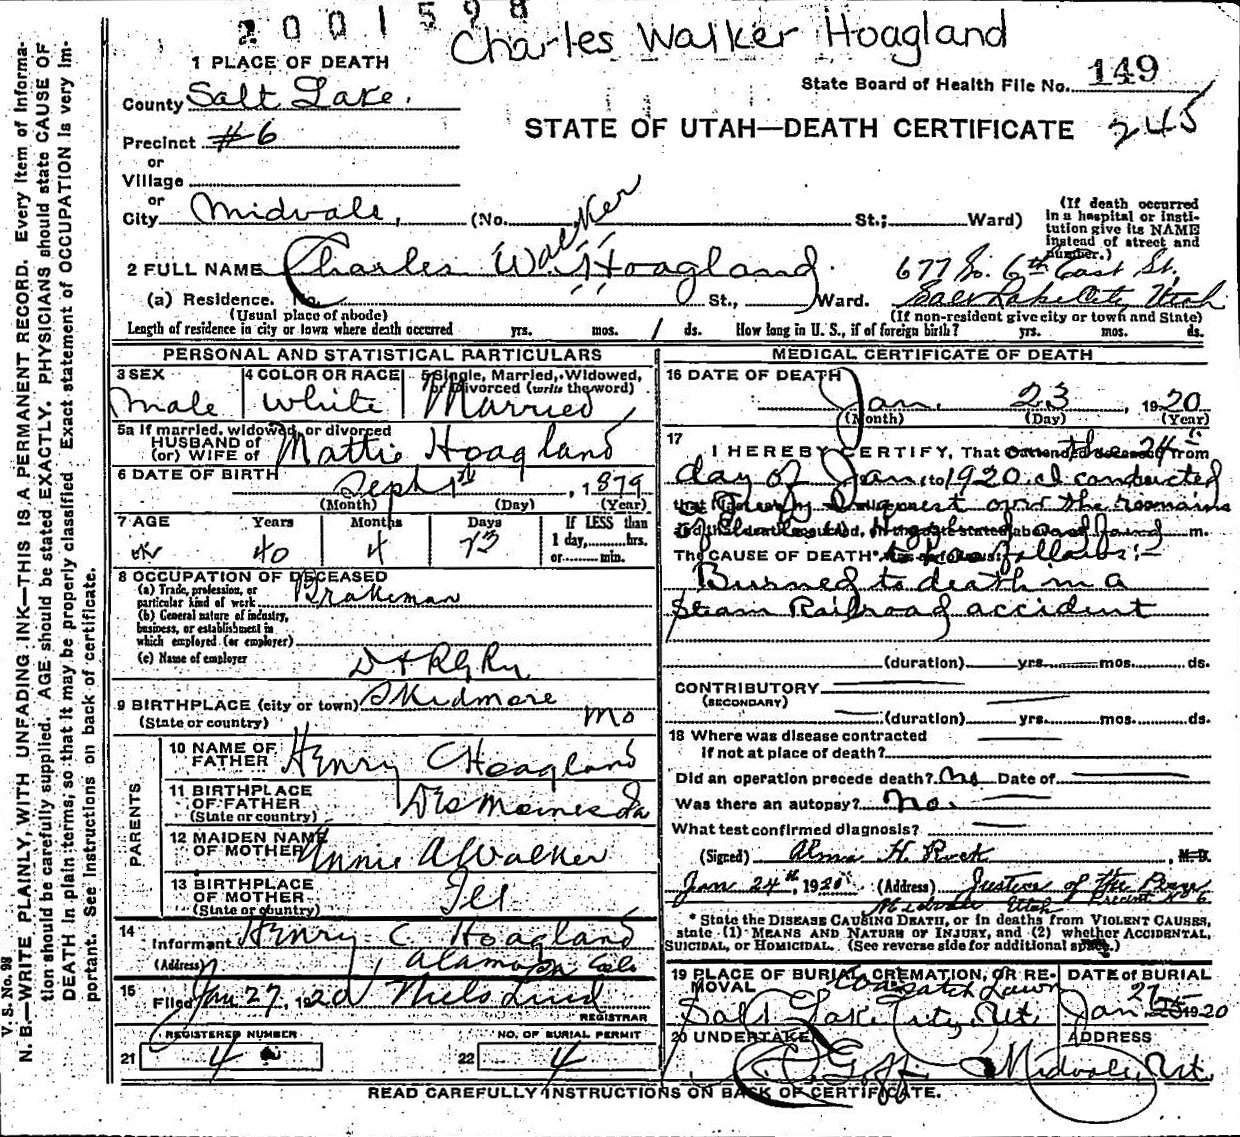 2001598
Charles Walker Hoagland
1 PLACE OF DEATH
State Board of Health File No. 149
County Salt Lake.
STATE OF UTAH—DEATH CERTIFICATE 245
Precinct #6
or
Village
or
City Midvale, (No. St.; Ward)
(If death occurred in a hospital or institution give its NAME instead of street and number.)
Walker
2 FULL NAME Charles W. Hoagland.
677 So. 6th East St.
(a) Residence. No. St., Ward. Salt Lake City, Utah
(Usual place of abode) (If non-resident give city or town and State)
Length of residence in city or town where death occurred yrs. mos. 1 ds. How long in U. S., if of foreign birth? yrs. mos. ds.
PERSONAL AND STATISTICAL PARTICULARS
3 SEX 4 COLOR OR RACE 5 Single, Married, Widowed, or Divorced (write the word)
Male White Married
5a If married, widowed, or divorced
HUSBAND of
(or) WIFE of Mattie Hoagland
6 DATE OF BIRTH Sept 1st, 1879
(Month) (Day) (Year)
7 AGE Years Months Days If LESS than 1 day, hrs. or min.
40 4
8 OCCUPATION OF DECEASED
(a) Trade, profession, or particular kind of work Brakeman
(b) General nature of industry, business, or establishment in which employed (or employer)
(c) Name of employer D & R G Ry
9 BIRTHPLACE (city or town) Skidmore
(State or country) Mo
PARENTS
10 NAME OF FATHER Henry C Hoagland
11 BIRTHPLACE OF FATHER (State or country) Des Moines Ia
12 MAIDEN NAME OF MOTHER Annie A Walker
13 BIRTHPLACE OF MOTHER (State or country) Ill
14 Informant Henry C. Hoagland
(Address) Alamosa Colo
15 Filed Jan 27, 1920 Niels Lind
REGISTRAR
REGISTERED NUMBER NO. OF BURIAL PERMIT
21 4 22 4
MEDICAL CERTIFICATE OF DEATH
16 DATE OF DEATH
Jan. 23, 1920
(Month) (Day) (Year)
17 I HEREBY CERTIFY, That on the 24
day of Jan 1920 I conducted
Inquest over the remains
of Charles W Hoagland and found
The CAUSE OF DEATH* as follows:
Burned to death in a
Steam Railroad accident
(duration) yrs. mos. ds.
CONTRIBUTORY
(SECONDARY)
(duration) yrs. mos. ds.
18 Where was disease contracted
if not at place of death?
Did an operation precede death? No Date of
Was there an autopsy? No.
What test confirmed diagnosis?
(Signed) Alma H. Rock, M. D.
Jan 24th, 1920 (Address) Justice of the Peace
Midvale Utah Precinct No 6
* State the DISEASE CAUSING DEATH, or in deaths from VIOLENT CAUSES, state (1) MEANS AND NATURE OF INJURY, and (2) whether ACCIDENTAL, SUICIDAL, or HOMICIDAL. (See reverse side for additional space.)
19 PLACE OF BURIAL, CREMATION, OR REMOVAL Wasatch Lawn
Salt Lake City, Ut.
DATE of BURIAL
Jan 27 1920
20 UNDERTAKER ADDRESS
Goff Midvale, Ut.
READ CAREFULLY INSTRUCTIONS ON BACK OF CERTIFICATE.
V. S. No. 98
N. B.—WRITE PLAINLY, WITH UNFADING INK—THIS IS A PERMANENT RECORD. Every item of information should be carefully supplied. AGE should be stated EXACTLY. PHYSICIANS should state CAUSE OF DEATH in plain terms, so that it may be properly classified. Exact statement of OCCUPATION is very important. See instructions on back of certificate.